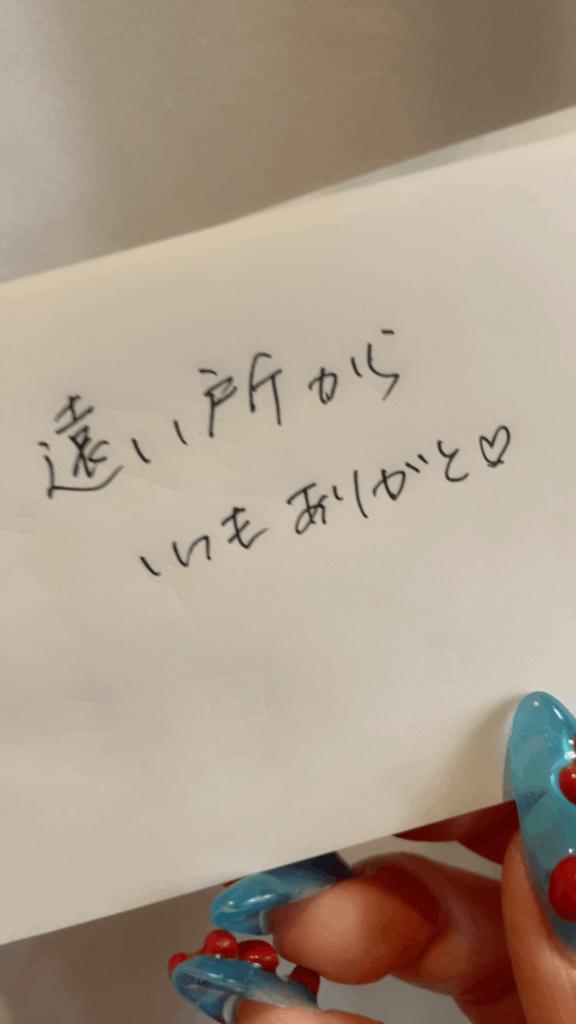 遠い所から
いつもありがと♡